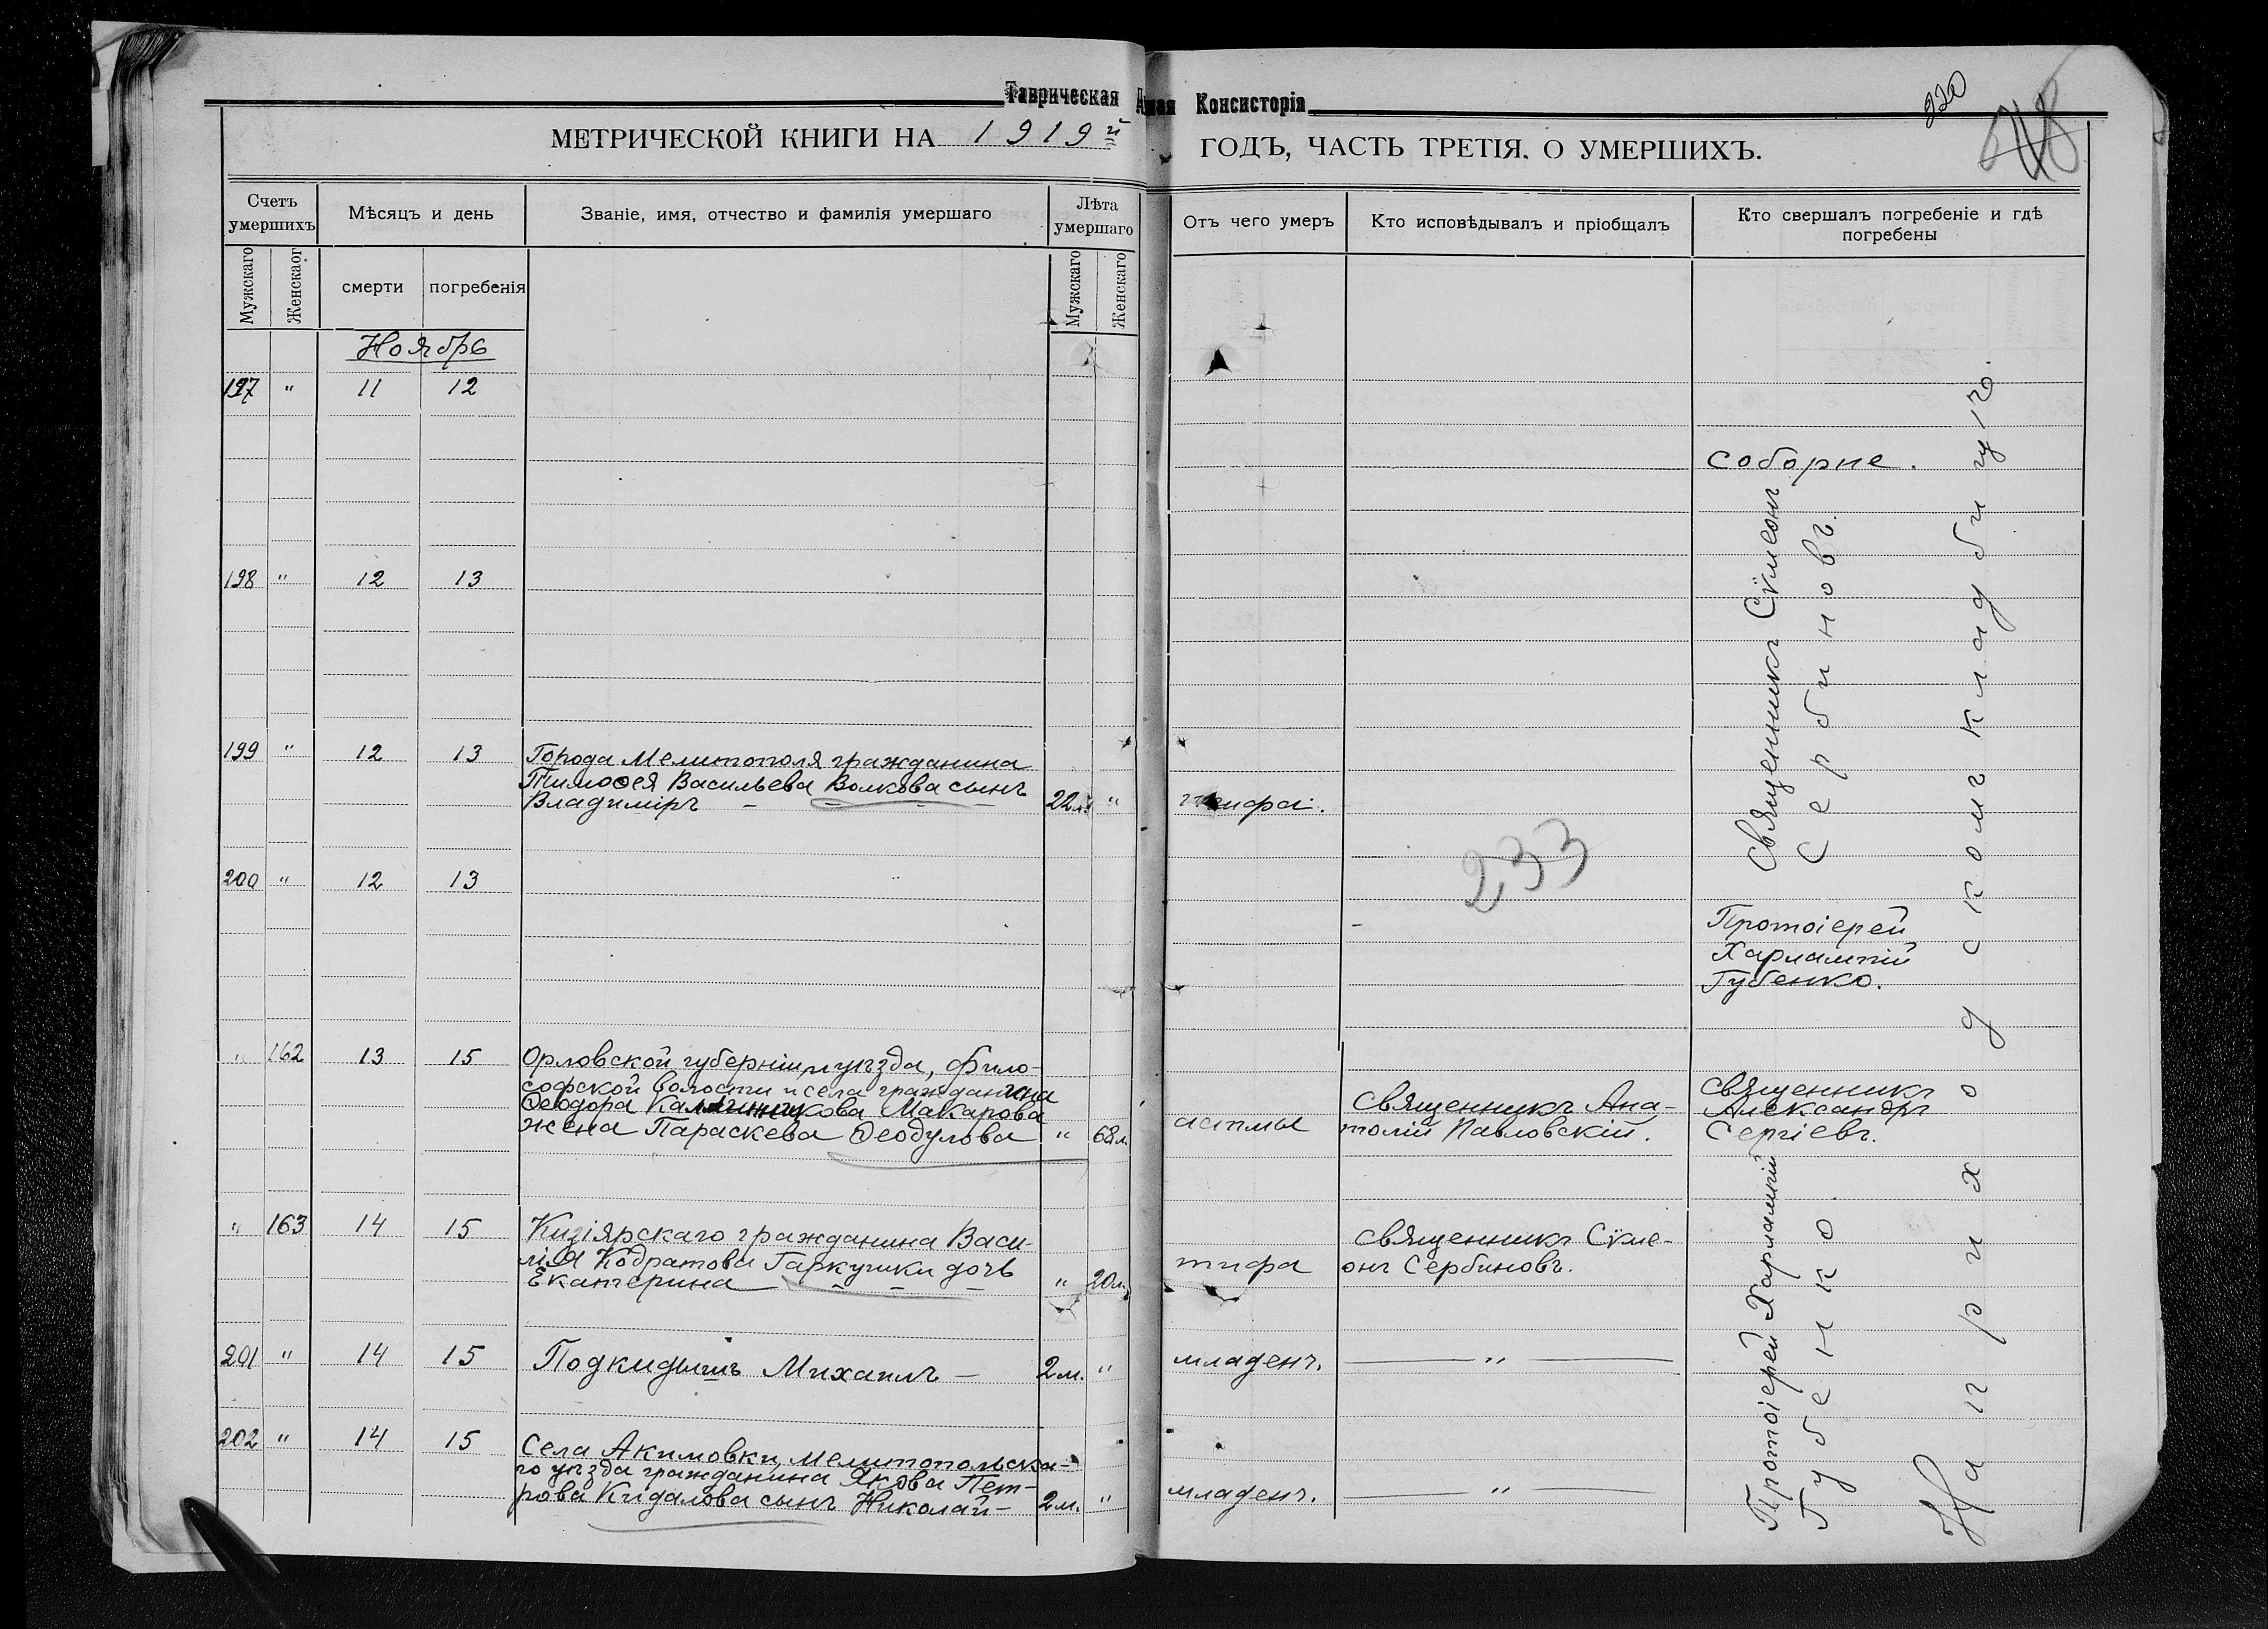 Таврическая
МЕТРИЧЕСКОЙ КНИГИ НА 1919й
Счетъ умершихъ
Мѣсяцъ и день
Званіе, имя, отчество и фамилія умершаго
Лѣта умершаго
Мужскаго
Женскаог
смерти
погребенія
Мужскаго
Женскаго
Ноябрь
197 " 11 12
198 " 12 13
199 " 12 13 Города Мелитополя гражданина
Тимоѳея Васильева Волкова сынъ
Владиміръ — 22 л. "
200 " 12 13
" 162 13 15 Орловской губерніи и уѣзда, Фило-
софской волости и села гражданина
Ѳеодора Макарова
жена Параскева Ѳеодулова " 68 л.
" 163 14 15 Кизіярскаго гражданина Васи-
лія Кодратова Гаркушки дочь
Екатерина " 20 л.
201 " 14 15 Подкидышъ Михаилъ — 2 м. "
202 " 14 15 Села Акимовки, Мелитопольска-
го уѣзда гражданина Якова Пет-
рова Кидалова сынъ Николай — 2 м. "
Консисторія
220
ГОДЪ, ЧАСТЬ ТРЕТІЯ. О УМЕРШИХЪ.
Отъ чего умеръ
Кто исповѣдывалъ и пріобщалъ
Кто свершалъ погребеніе и гдѣ
погребены
Соборне.
Священникъ Сѵмеонъ
Сербиновъ.
тифа.
233
Протоіерей
Харлампій
Губенко.
астмы
Священникъ Ана-
толій Павловскій.
Священникъ
Александръ
Сергіевъ.
тифа
Священникъ Сѵме-
онъ Сербиновъ.
младенч. — " —
младенч. — " —
Протоіерей Харлампій
Губенко.
На приходскомъ кладбищѣ.